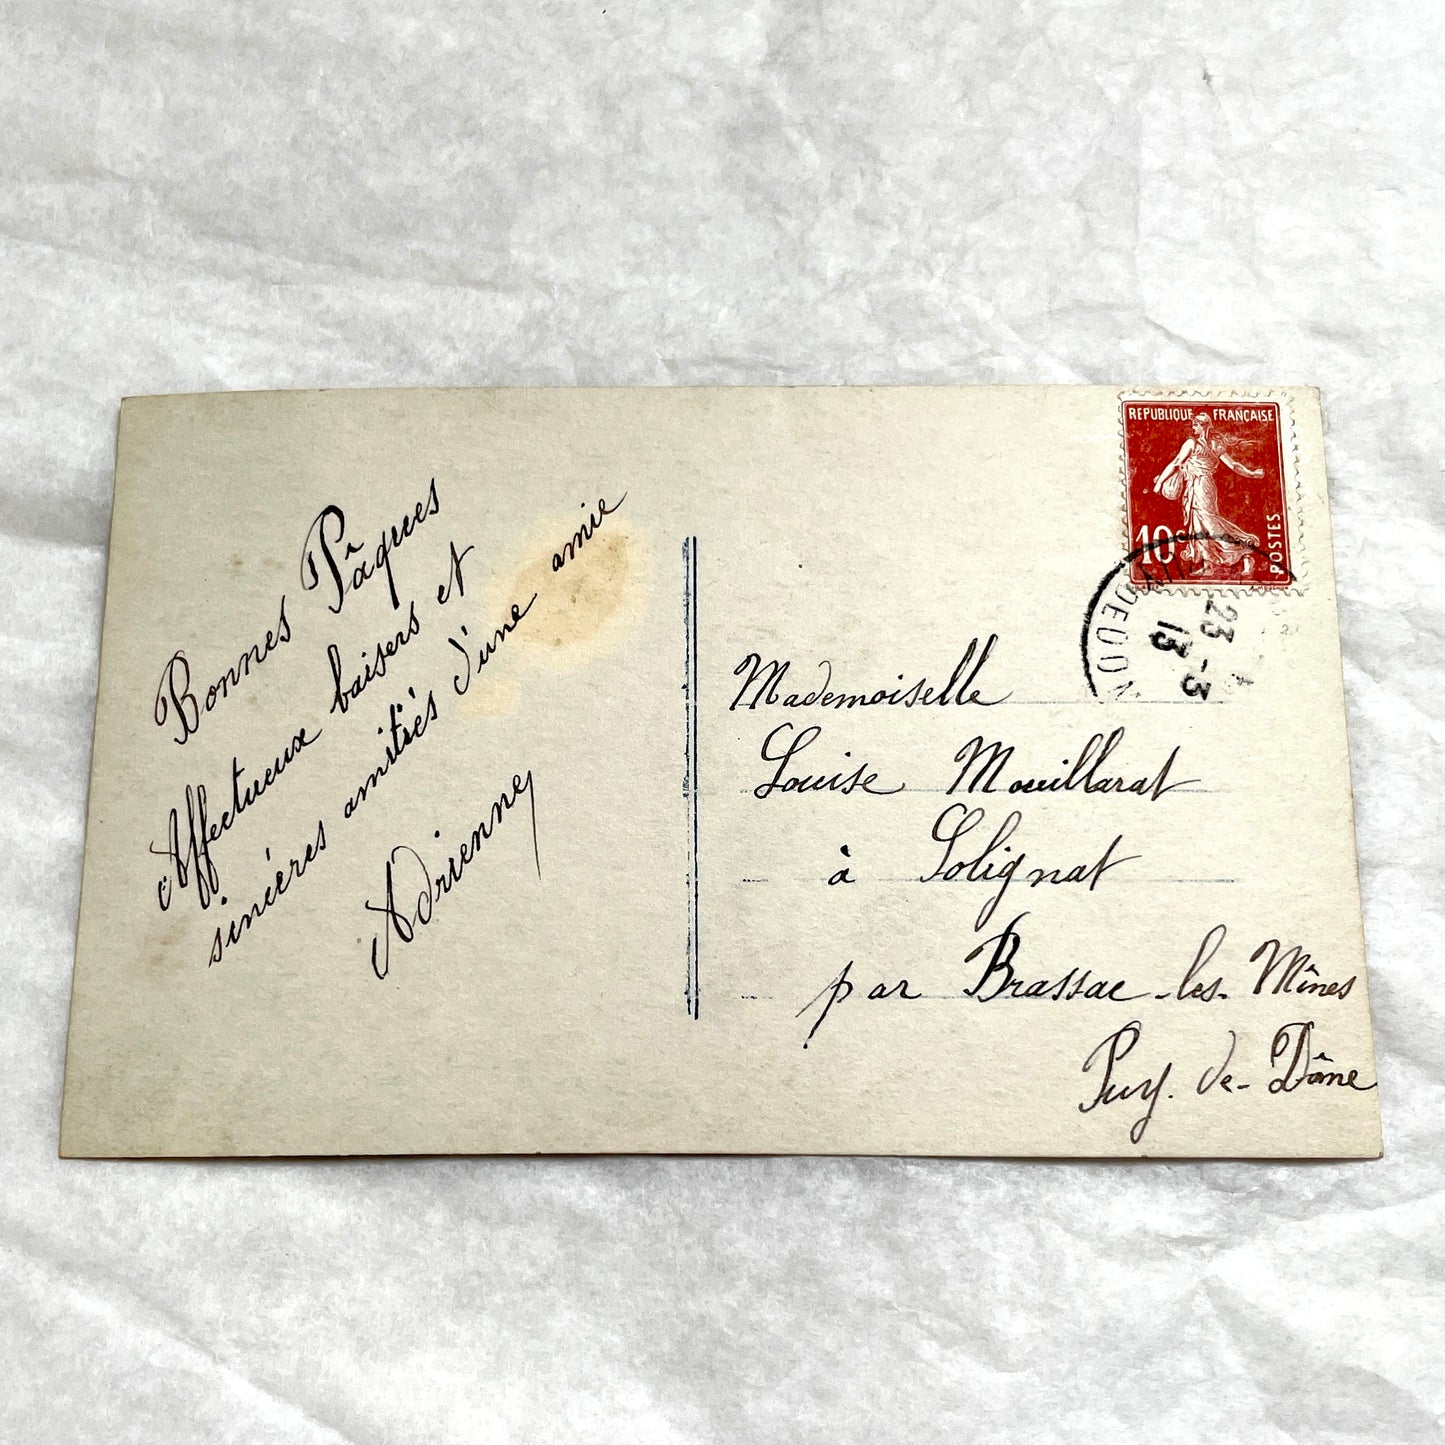 Bonnes Pâques
Affectueux baisers et
sincéres amitiés d'une amie
Adrienne
REPUBLIQUE FRANÇAISE
10c
POSTES
23 -3
13
Mademoiselle
Louise Mouillarat
à Solignat
par Brassac-les-Mînes
Puy-de-Dâme